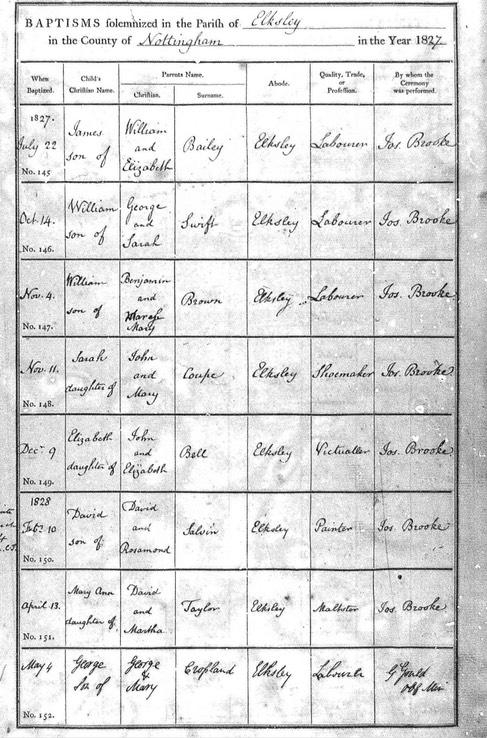 BAPTISMS solemnized in the Parish of Elksley
in the County of Nottingham in the Year 1827
When Baptized. Child's Christian Name. Parents Name. Abode. Quality, Trade, or Profession. By whom the Ceremony was performed.
Christian. Surname.
1827.
July 22
No. 145
James
son of
William
and
Elizabeth
Bailey
Elksley
Labourer
Jos. Brooke
Oct. 14.
No. 146.
William
son of
George
and
Sarah
Swift
Elksley
Labourer
Jos. Brooke
Nov. 4.
No. 147.
William
son of
Benjamin
and
Mary
Brown
Elksley
Labourer
Jos. Brooke
Nov. 11.
No. 148.
Sarah
daughter of
John
and
Mary
Coupe
Elksley
Shoemaker
Jos. Brooke
Decr 9
No. 149.
Elizabeth
daughter of
John
and
Elizabeth
Bell
Elksley
Victualler
Jos. Brooke
1828
Feb. 10
No. 150.
David
son of
David
and
Rosamond
Salvin
Elksley
Painter
Jos. Brooke
April 13.
No. 151.
Mary Ann
daughter of
David
and
Martha
Taylor
Elksley
Maltster
Jos. Brooke
May 4
No. 152.
George
Son of
George
&
Mary
Cropland
Elksley
Labourer
G Gould
Off Min